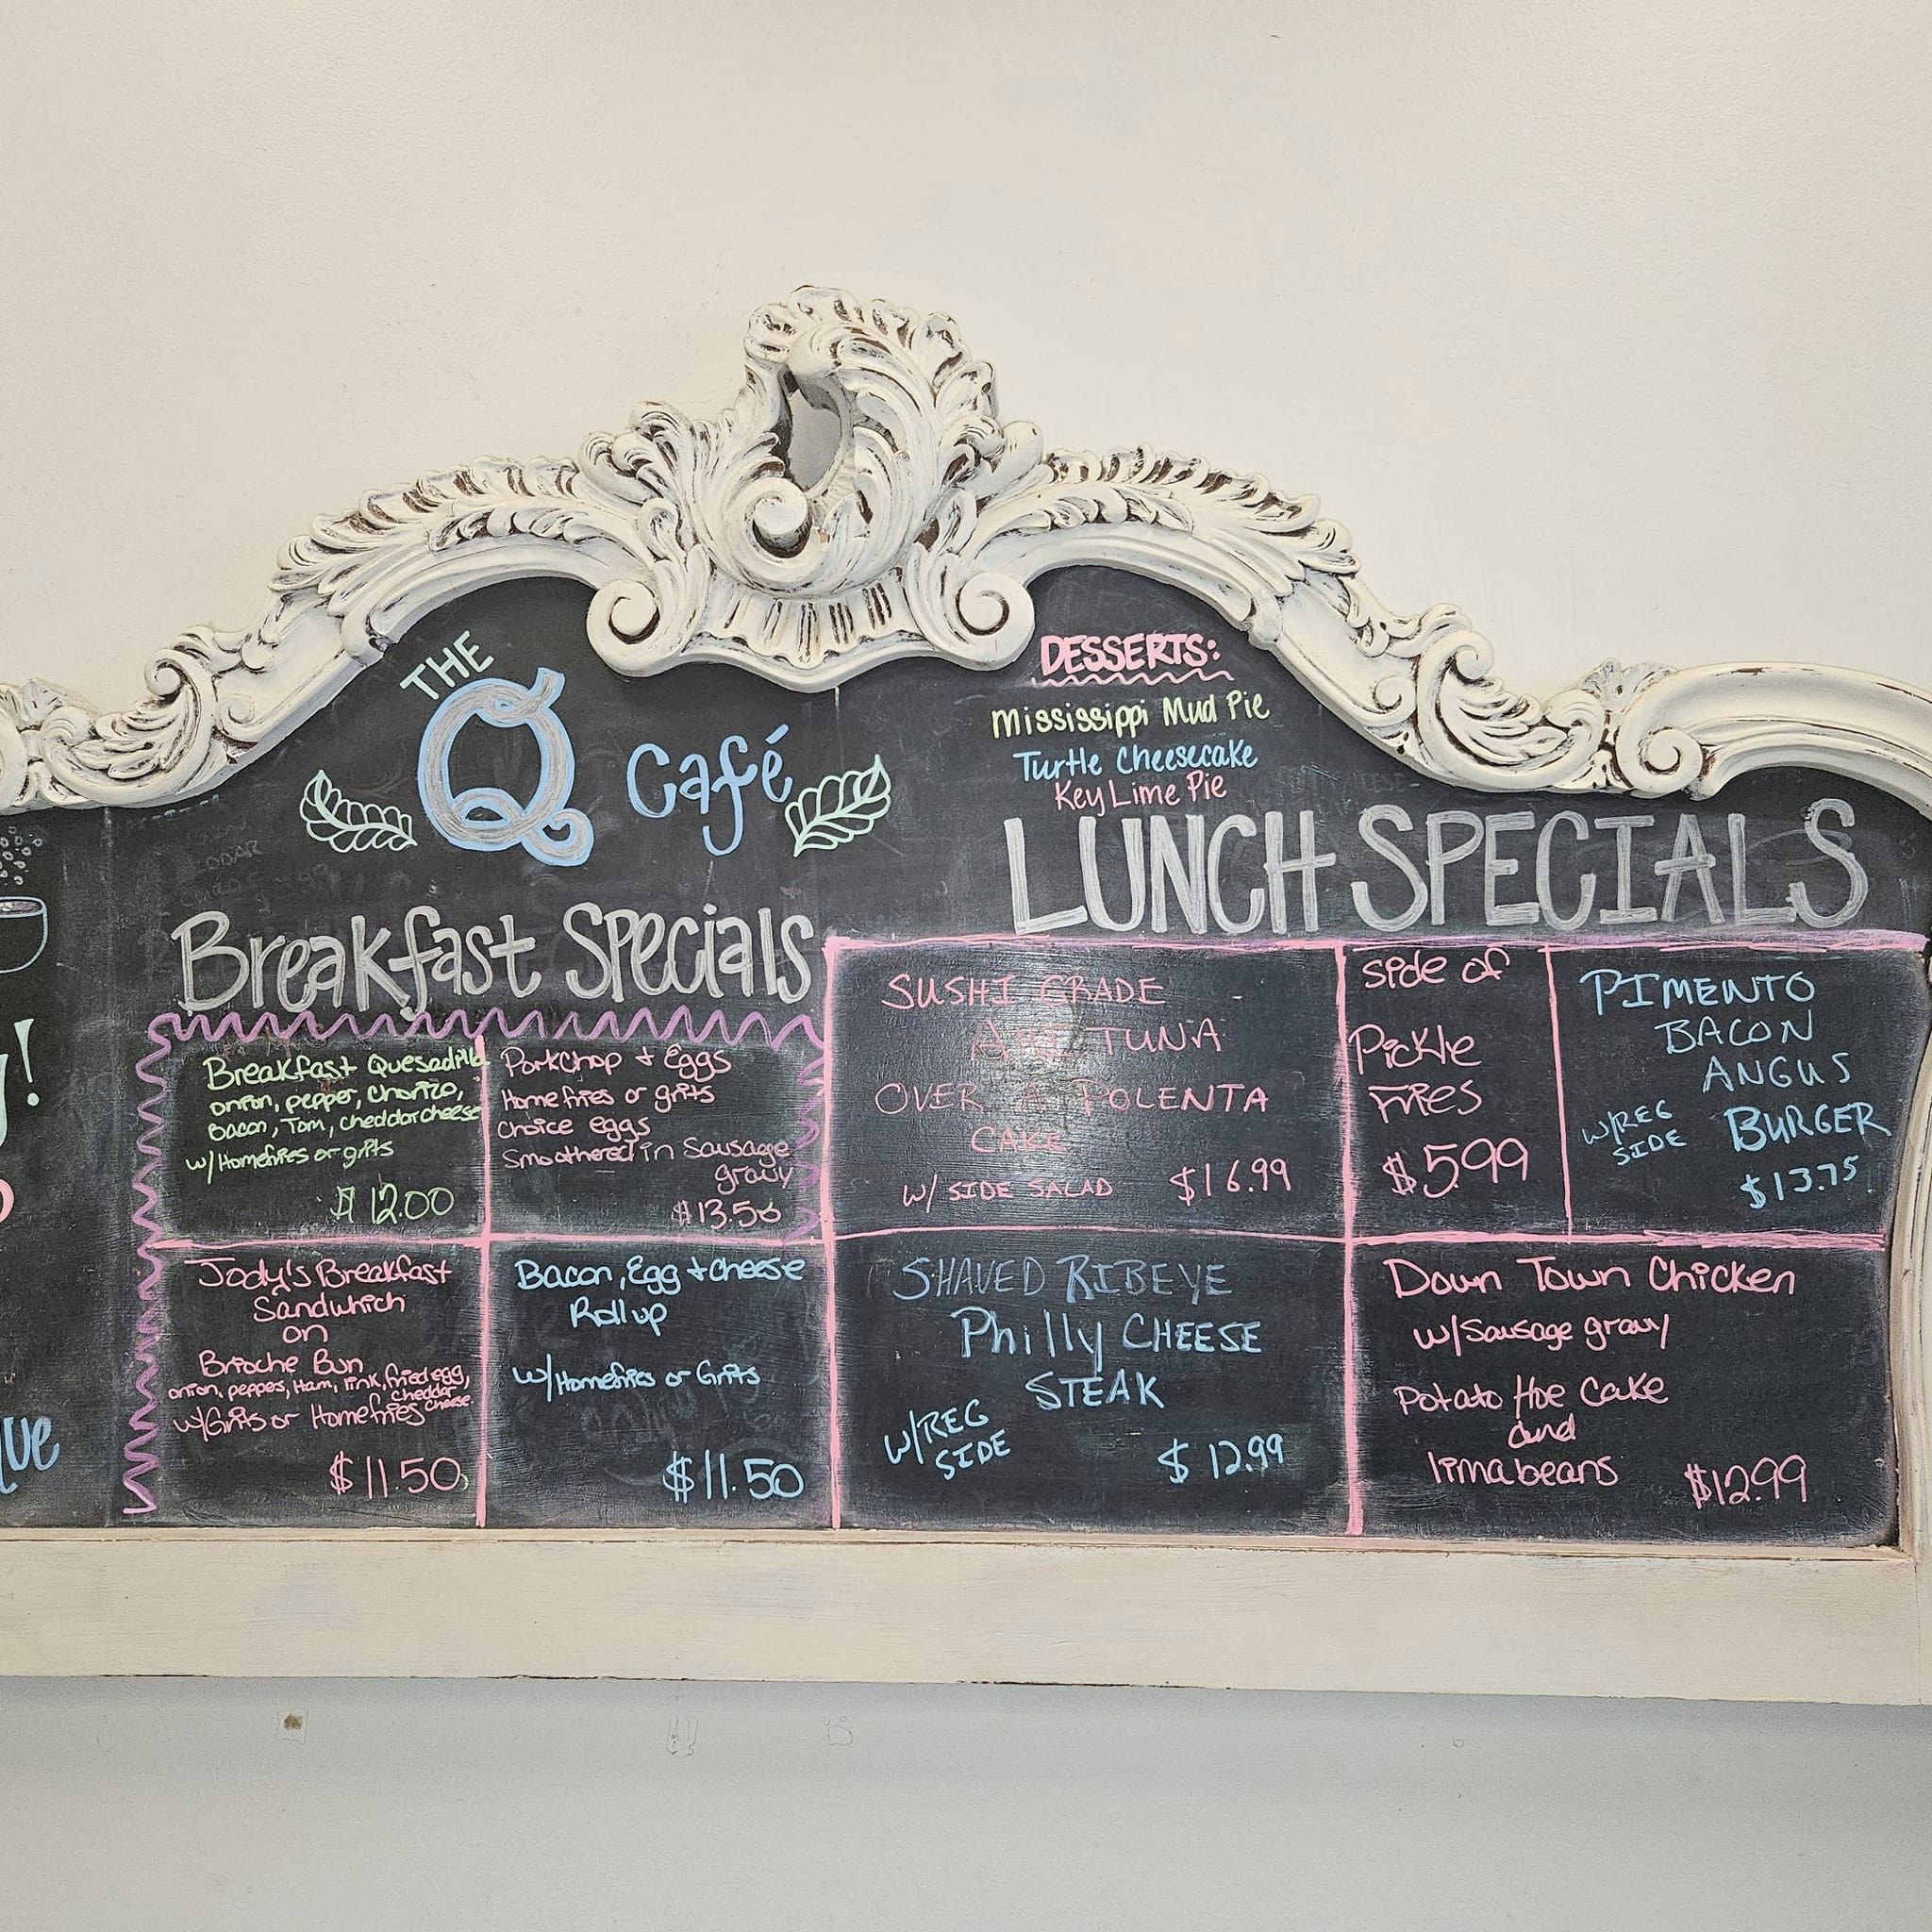 THE
Q Café
DESSERTS:
Mississippi Mud Pie
Turtle Cheesecake
Key Lime Pie
Breakfast Specials
Breakfast Quesadilla
onion, pepper, Chorizo,
Bacon, Tom, cheddar cheese
w/Homefries or grits
$12.00
PorkChop + Eggs
Homefries or grits
Choice eggs
Smoothered in Sausage
gravy
$13.50
Jody's Breakfast
Sandwhich
on
Brioche Bun
onion, pepper, Ham, link, fried egg,
cheddar
cheese
w/Grits or Homefries
$11.50
Bacon, Egg + cheese
Roll up
w/Homefries or Grits
$11.50
LUNCH SPECIALS
SUSHI GRADE
AHI TUNA
OVER A POLENTA
CAKE
w/ SIDE SALAD $16.99
Side of
Pickle
Fries
$5.99
PIMENTO
BACON
ANGUS
BURGER
w/REG
SIDE
$13.75
SHAVED RIBEYE
Philly CHEESE
STEAK
w/REG
SIDE
$12.99
Down Town Chicken
w/Sausage gravy
Potato Hoe Cake
and
lima beans $12.99